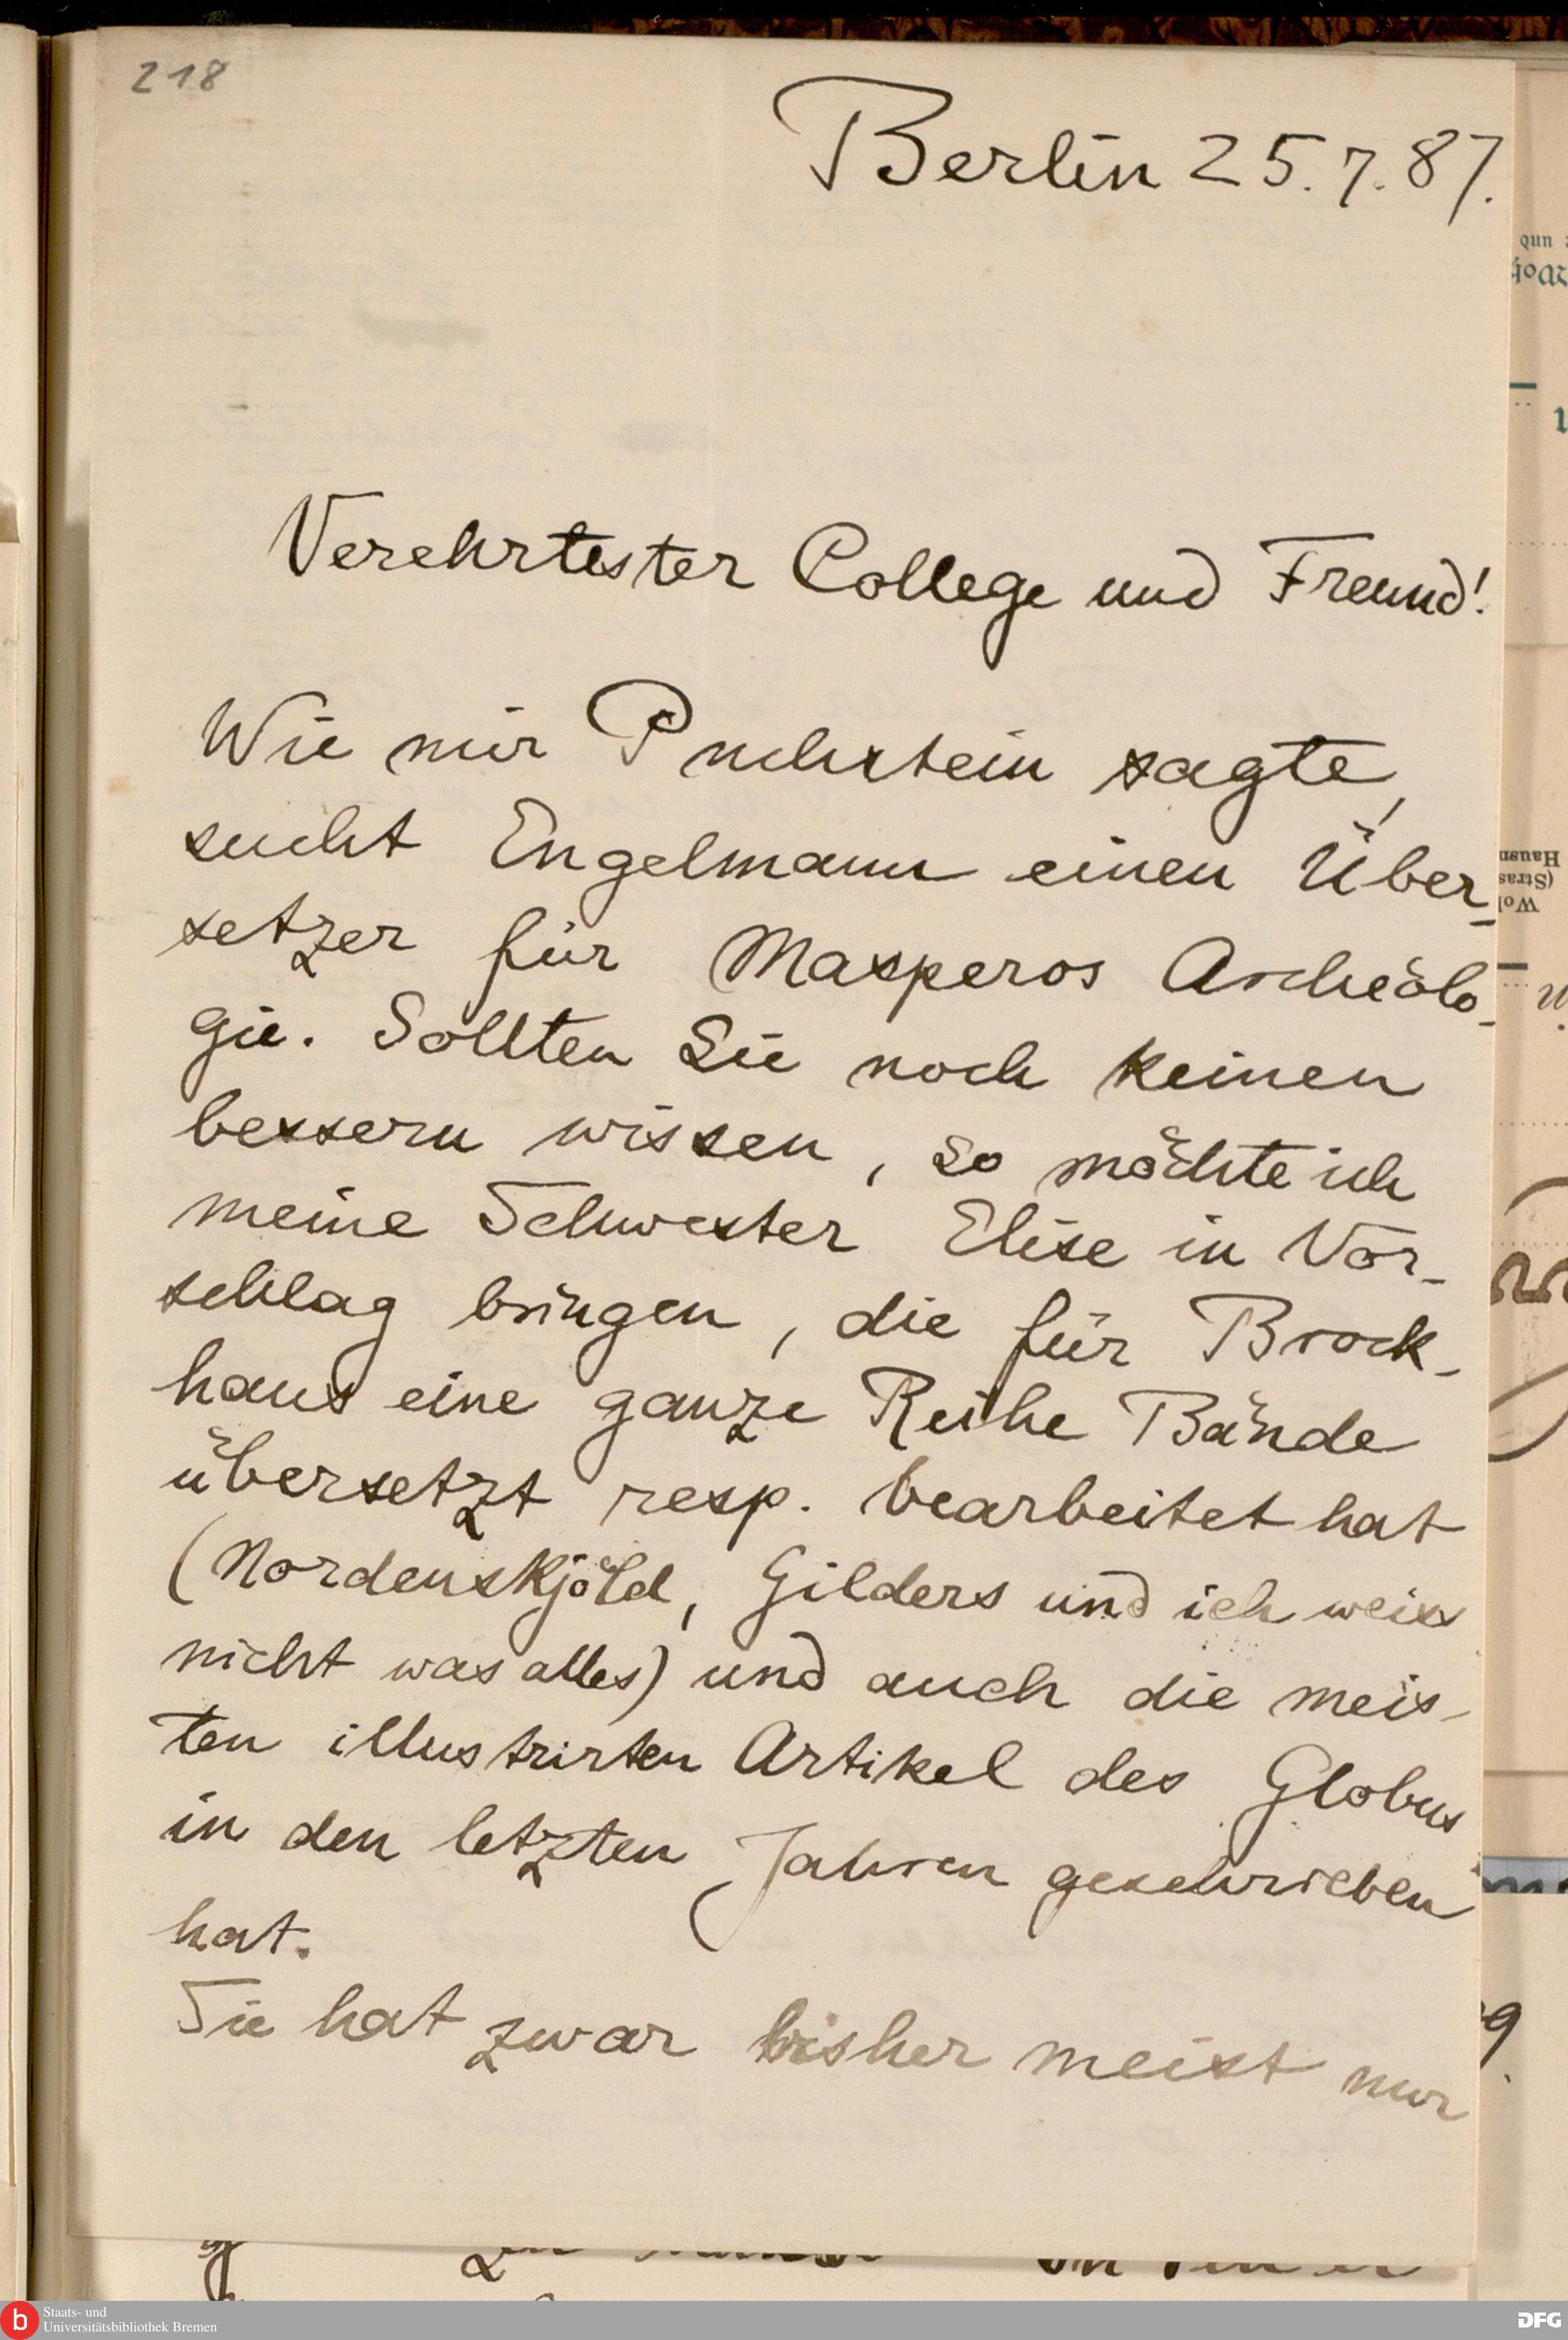 218
Berlin 25.7.87.
Verehrtester College und Freund!
Wie mir Puchstein sagte,
sucht Engelmann einen Über-
setzer für Masperos Archäolo-
gie. Sollten Sie noch keinen
bessern wissen, so möchte ich
meine Schwester Elise in Vor-
schlag bringen, die für Brock-
haus eine ganze Reihe Bände
übersetzt resp. bearbeitet hat
(Nordenskjöld, Gilders und ich weiss
nicht was alles) und auch die meis-
ten illustrirten Artikel des Globus
in den letzten Jahren geschrieben
hat.
Sie hat zwar bisher meist nur
Staats- und
Universitätsbibliothek Bremen
DFG